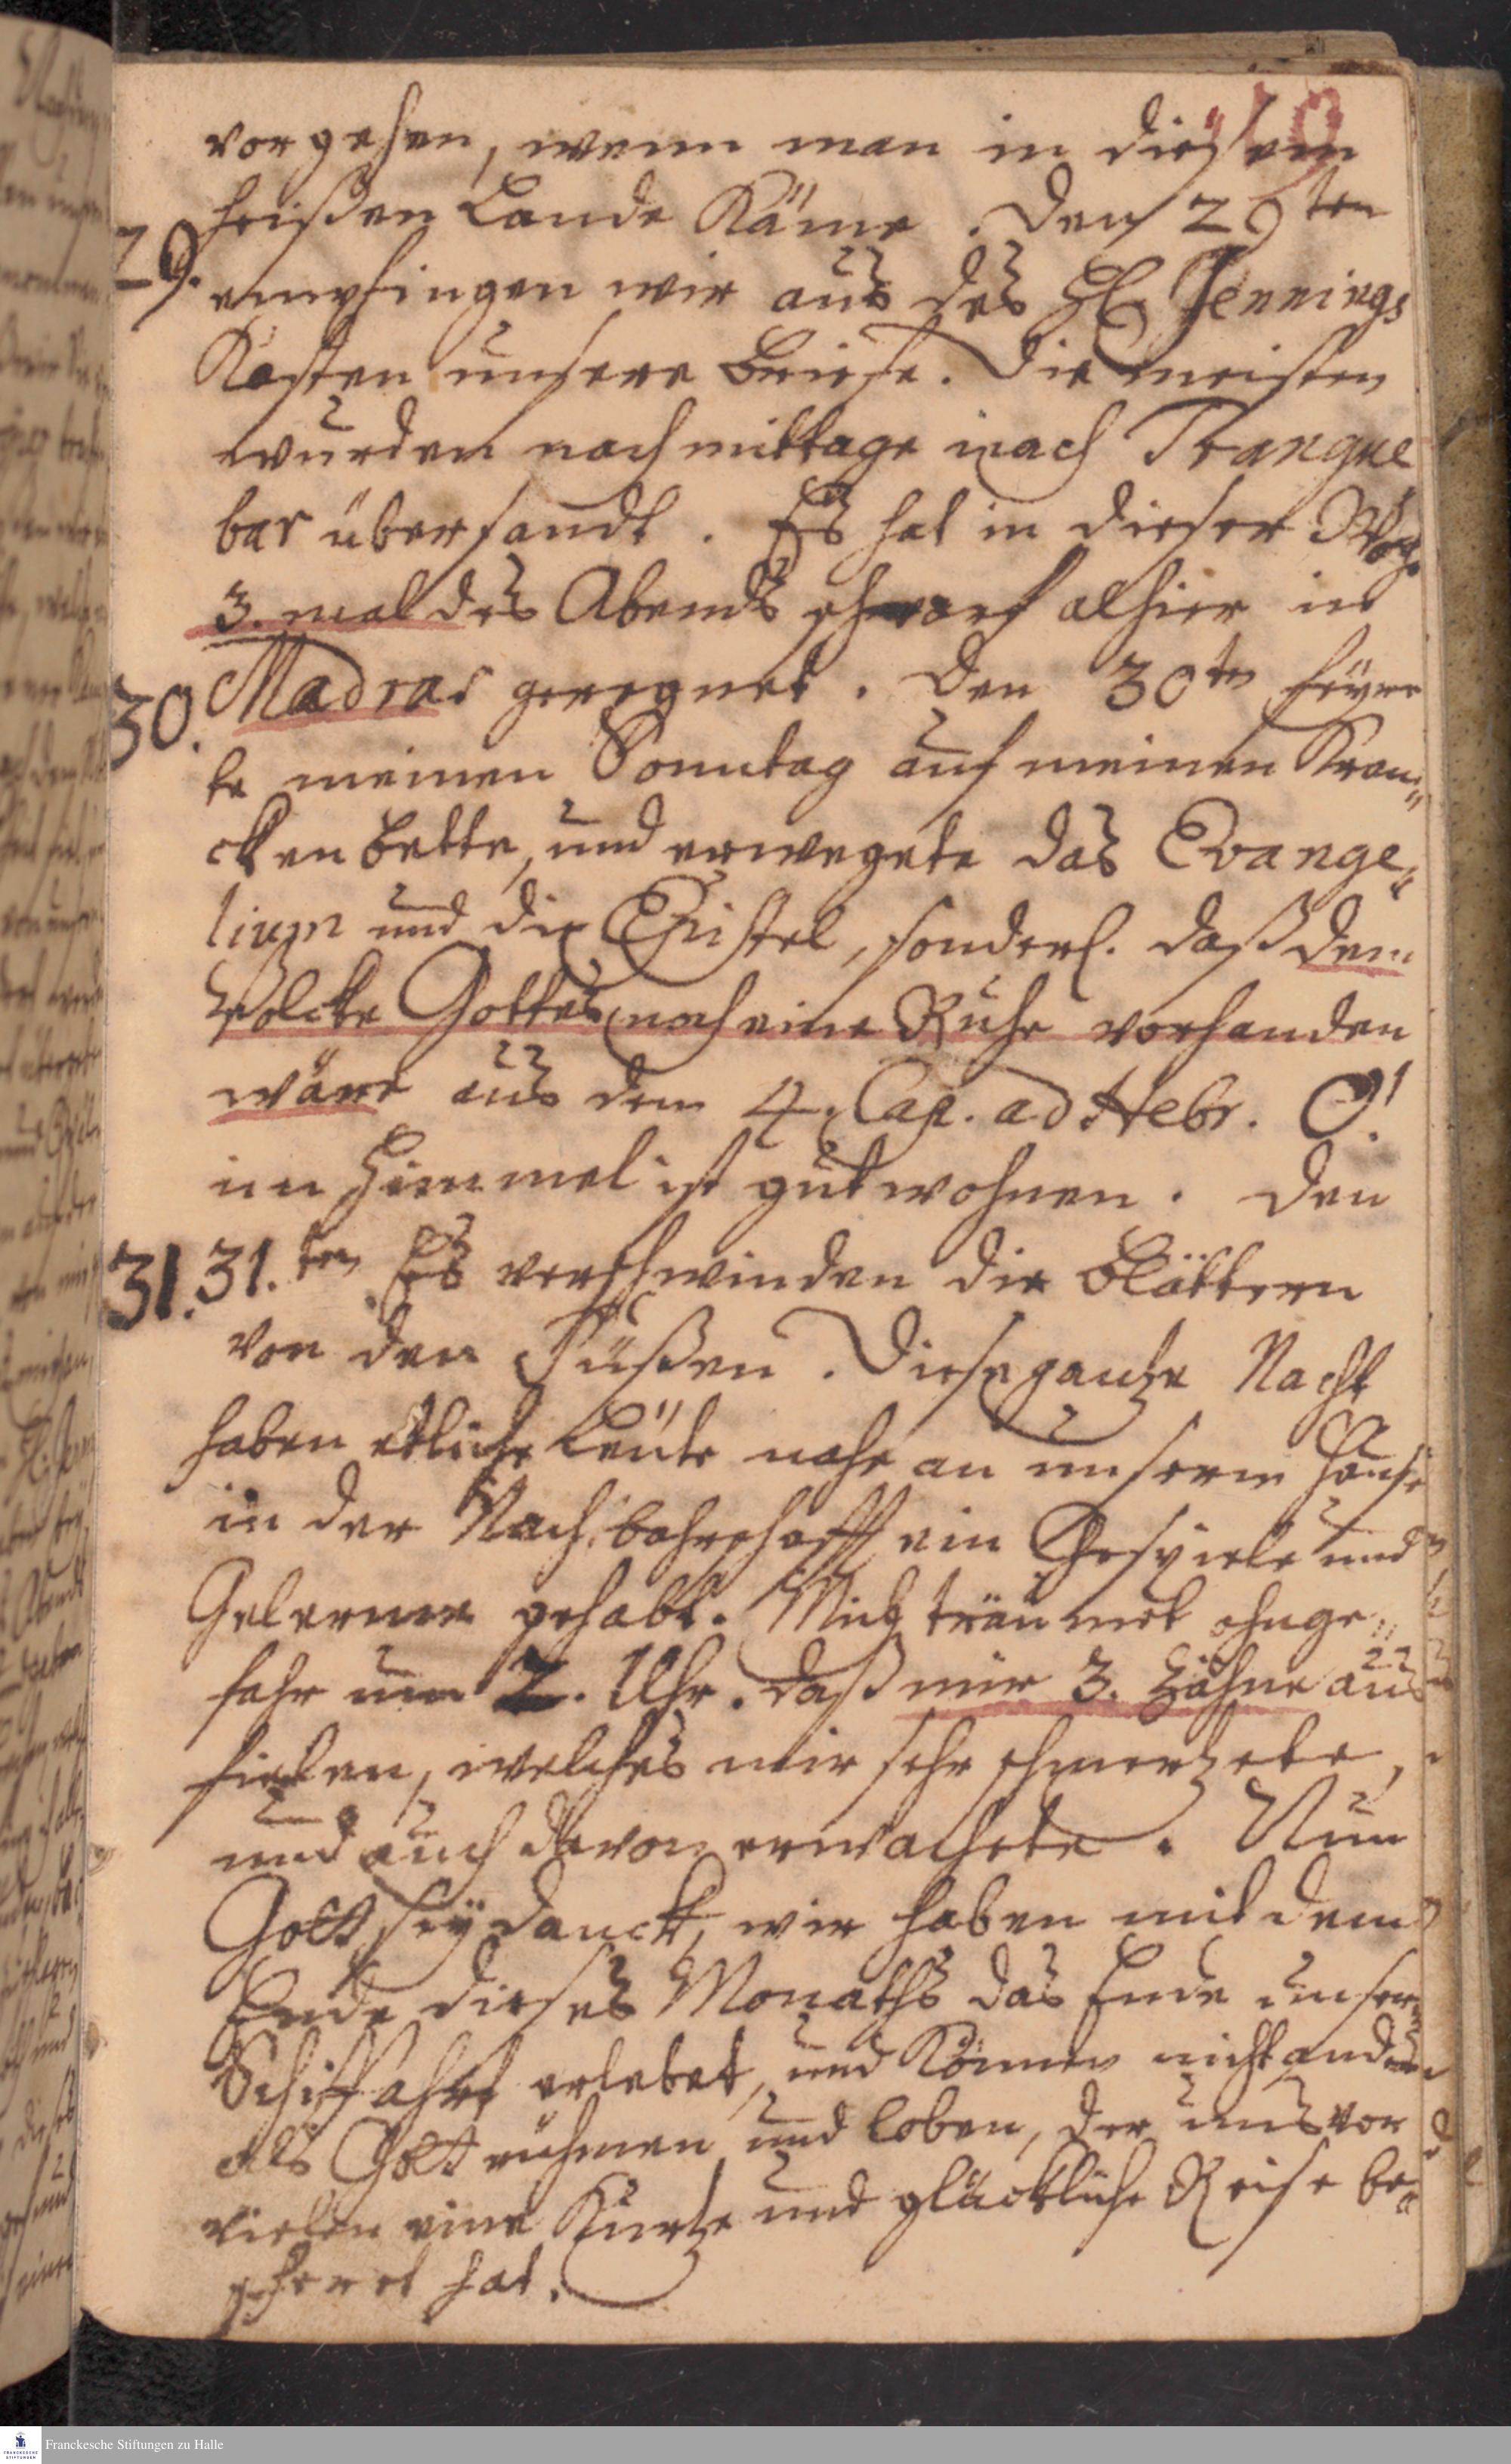 10
vorgehen, wenn man in diesem
heißen Lande Käme. Den 29ten
29. empfingen wir aus des H. Jennings
Kasten unsere Briefe. Die meisten
wurden nachmittage nach Tranque
bar übersandt. Es hat in dieser Woch.
3. mal des Abends scharf alhier in
Madras geregnet. Den 30ten feyer
30. te meinen Sonntag auf meinen Kran„
cken bette, und erwegete das Evange„
lium und die Epistel, sonderl. daß dem
Volcke Gottes noch eine Ruhe vorhanden
wäre aus dem 4. Cap. ad Hebr. O!
im Himmel ist gut wohnen. Den
31. 31.ten Es verschwinden die Blättern
von den Füßen. Diese gantze Nacht
haben etliche Leüte nahe an unserm Hause
in der Nachbahrschafft ein Gespiele und
Gelerme gehabt. Mich träumet ohnge„
fehr um 2. Uhr. daß mir 3. Zähne aus
fielen, welches mir sehr schmertzete,
und auch davon erwachete. Nun
Gott sey danck, wir haben mit dem
Ende dieses Monaths das Ende unser
Schiffahrt erlebet, und Können nicht anders
als Gott rühmen und loben, der uns vor
vielen eine Kurtze und glückliche Reise be„
scheret hat.
Franckesche Stiftungen zu Halle